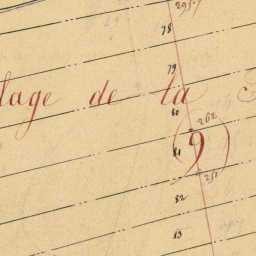 295.7
78
79
lage de la
80
262
(9)
81
251
82
83